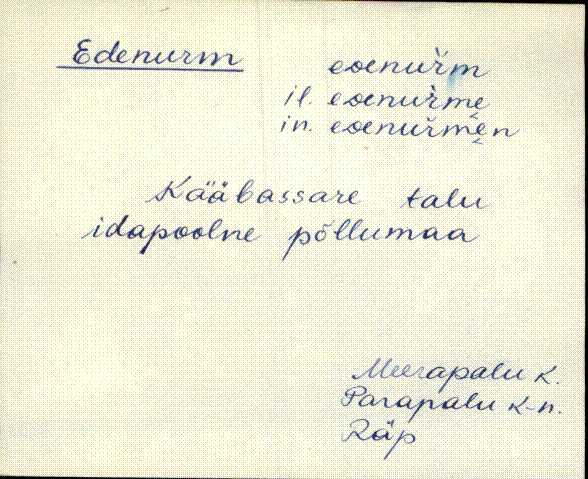 Edenurm edenuŕm
il. edenuŕmɛ
in. edenuŕmɛn
Kääbassare talu
idapoolne põllumaa
Meerapalu k.
Parapalu k-n.
Räp